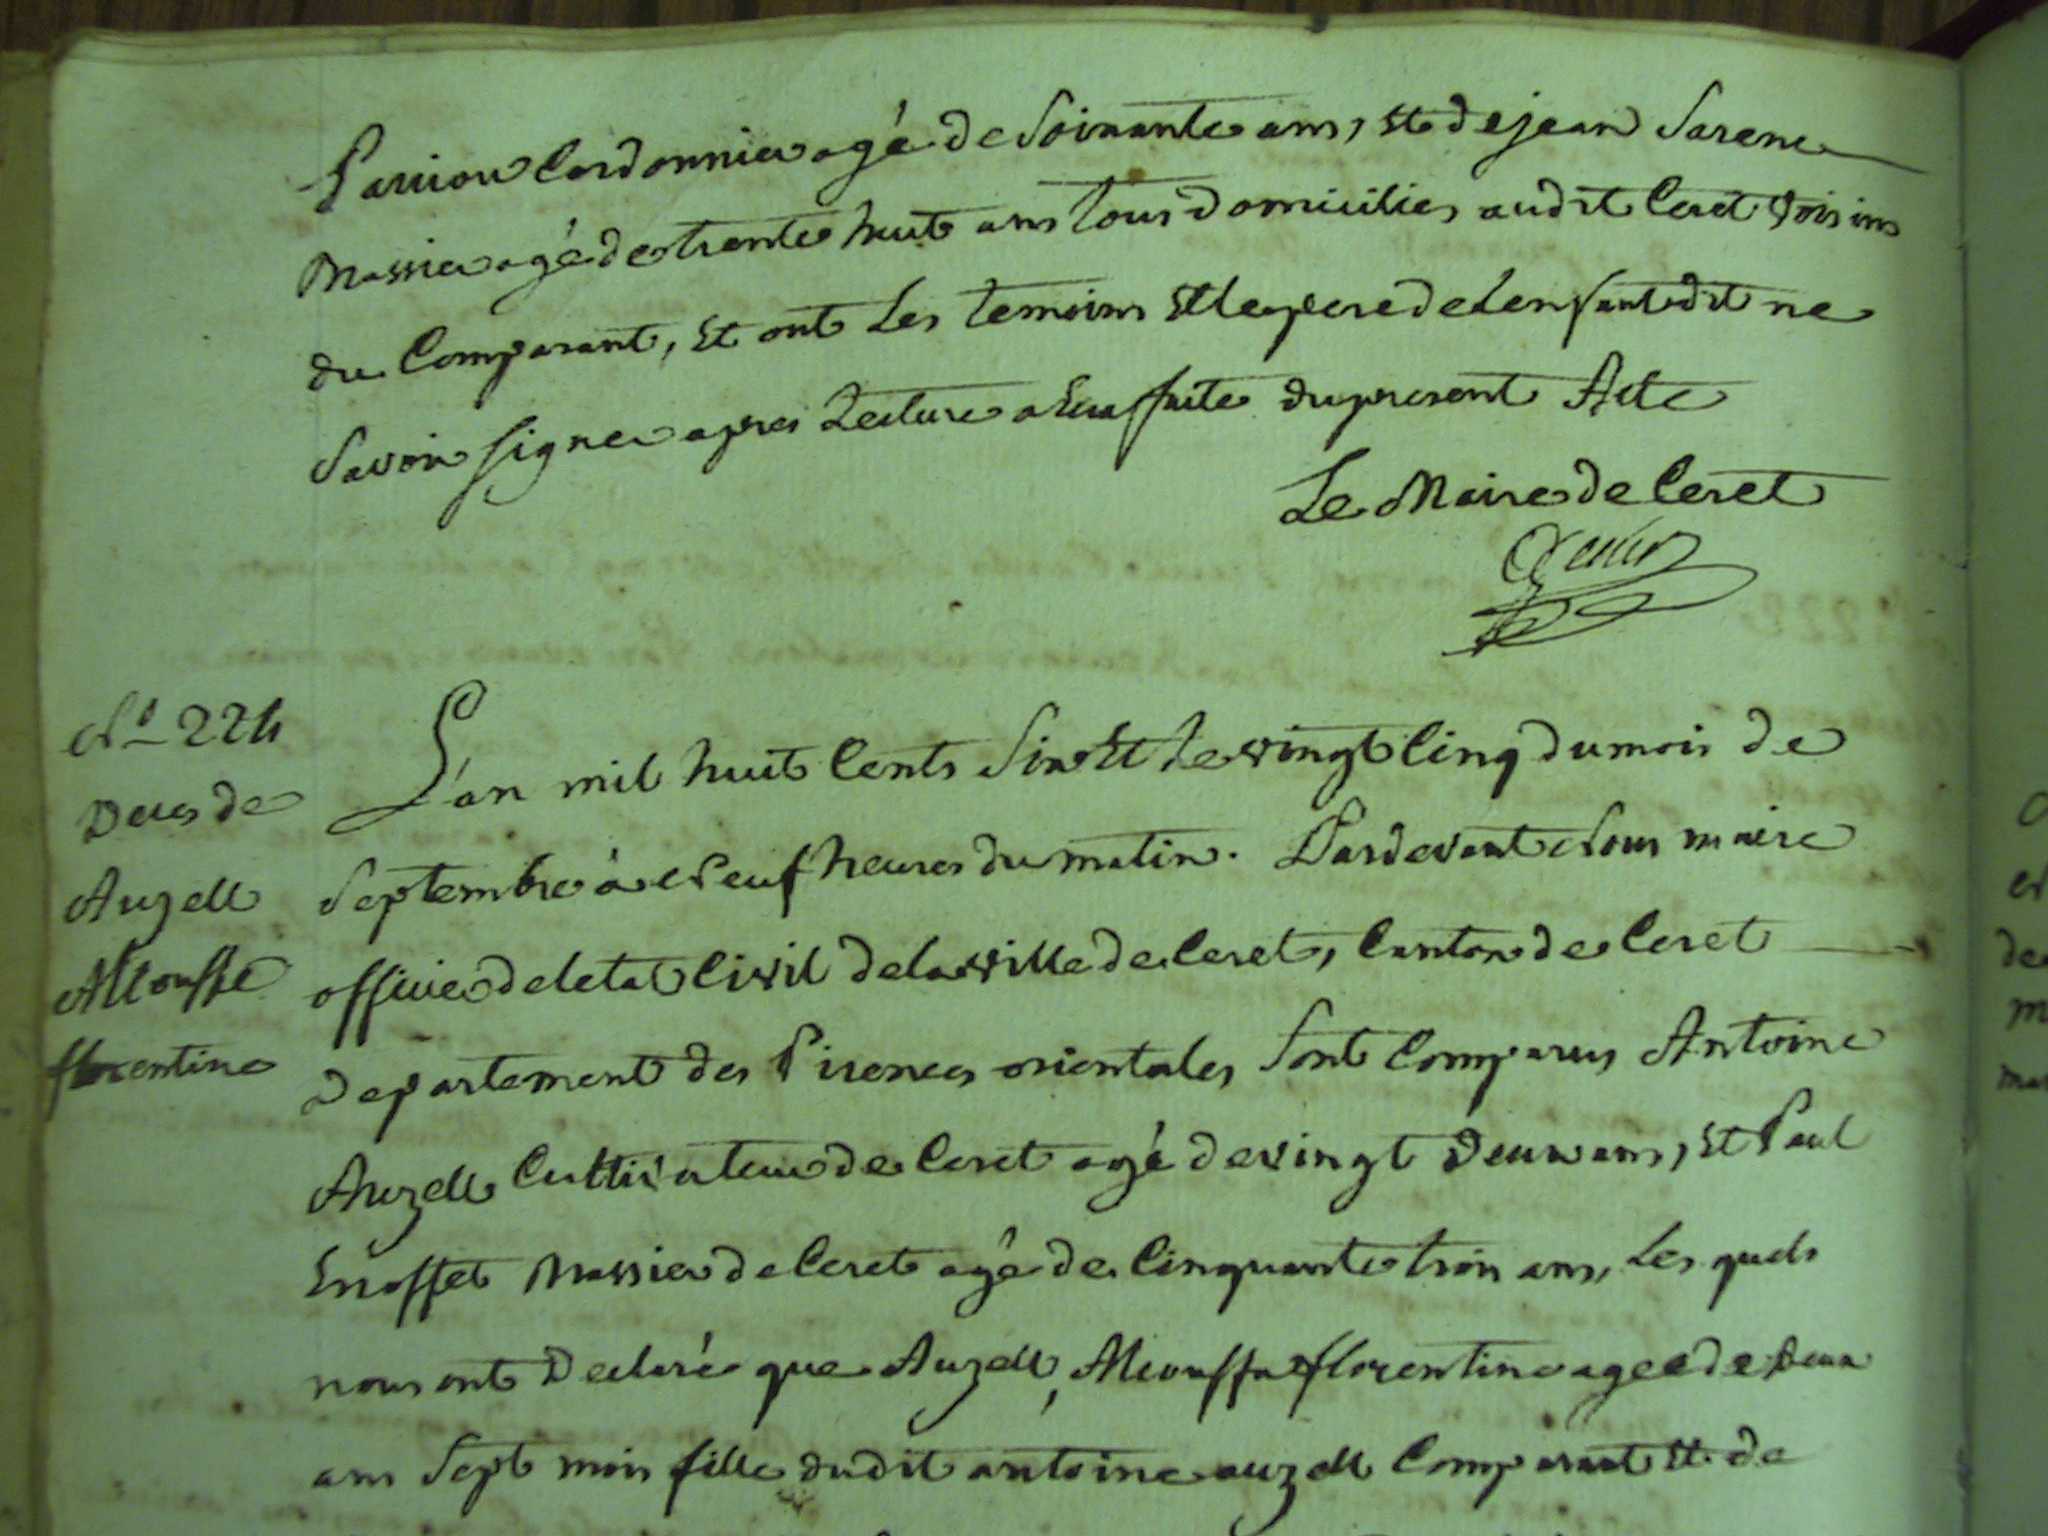 Cordonnier agé de Soixante ans, Et de jean Sarene
Massier agé de trente huit ans tous domiciliés audit Ceret Voisins
du Comparant, Et ont Les temoins Et le pere de L'enfant dit ne
Savoir signer apres Lecture a Eux faite du present Acte
Le Maire de Ceret
N.° 224
Deces de
Auzell
florentine
L'an mil huit Cents Six Et le vingt Cinq du mois de
Septembre à Neuf heures du matin. Pardevant Nous maire
officier de letat Civil de la ville de Ceret, Canton de Ceret
Departement des Pirenees orientales Sont Comparus Antoine
Auzell Cultivateur de Ceret agé de vingt Deux ans, Et Paul
Massier de Ceret agé de Cinquante trois ans, Les quels
nous ont Declaré que Auzell, florentine agee de Deux
ans Sept mois fille dudit antoine auzell Comparant Et de